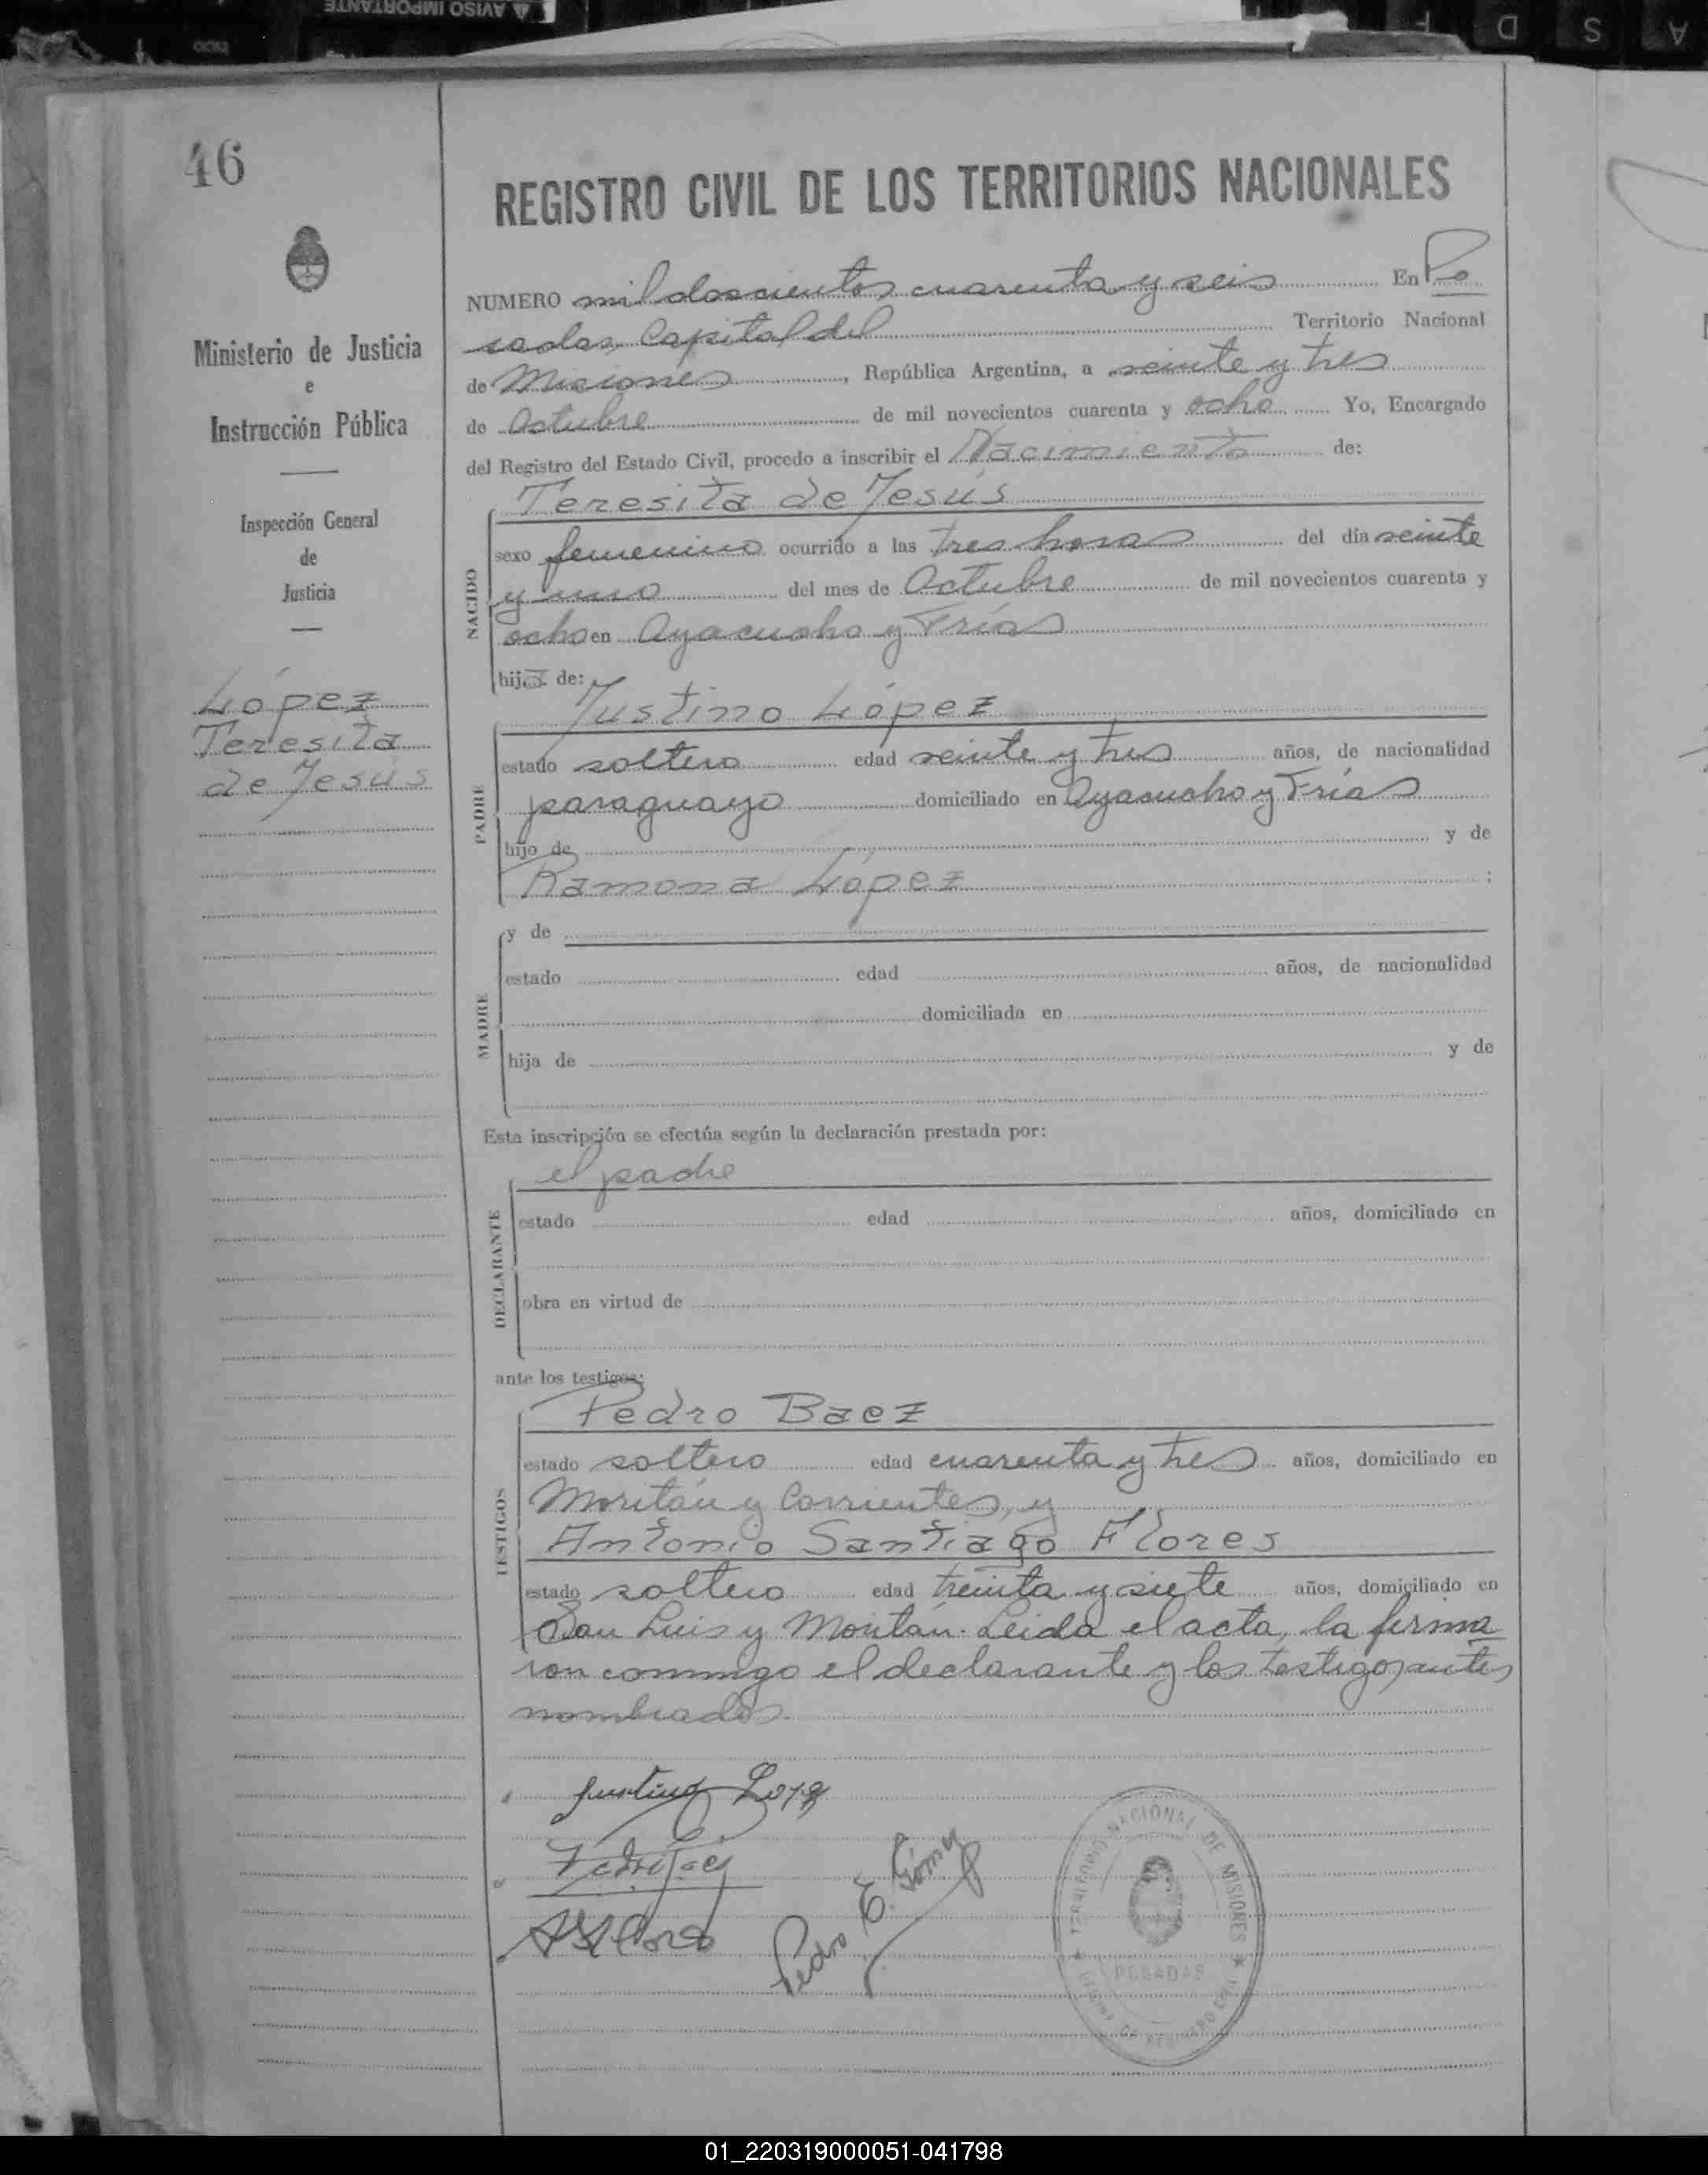 AVISO IMPORTANTE
A S D F
46
Ministerio de Justicia
e
Instrucción Pública
Inspección General
de
Justicia
López
Teresita
de Jesús
REGISTRO CIVIL DE LOS TERRITORIOS NACIONALES
NUMERO mil doscientos cuarenta y seis En Po
sadas, Capital del Territorio Nacional
de Misiones, República Argentina, a veinte y tres
de Octubre de mil novecientos cuarenta y ocho Yo, Encargado
del Registro del Estado Civil, procedo a inscribir el Nacimiento de:
Teresita de Jesús
NACIDO
sexo femenino ocurrido a las tres horas del día veinte
y uno del mes de Octubre de mil novecientos cuarenta y
ocho en Ayacucho y Frías
hija de:
Justino López
PADRE
estado soltero edad veinte y tres años, de nacionalidad
paraguayo domiciliado en Ayacucho y Frías
hijo de y de
Ramona López ;
MADRE
y de
estado edad años, de nacionalidad
domiciliada en
hija de y de
Esta inscripción se efectúa según la declaración prestada por:
el padre
DECLARANTE
estado edad años, domiciliado en
obra en virtud de
ante los testigos:
Pedro Baez
TESTIGOS
estado soltero edad cuarenta y tres años, domiciliado en
Moritán y Corrientes, y
Antonio Santiago Flores
estado soltero edad treinta y siete años, domiciliado en
San Luis y Moritán. Leida el acta, la firma
ron conmigo el declarante y los testigos antes
nombrados.
Justino Lopez
Pedro Baez
Pedro E. Gómez
TERRITORIO NACIONAL DE MISIONES
POSADAS
OFICINA DE REGISTRO CIVIL
01_220319000051-041798